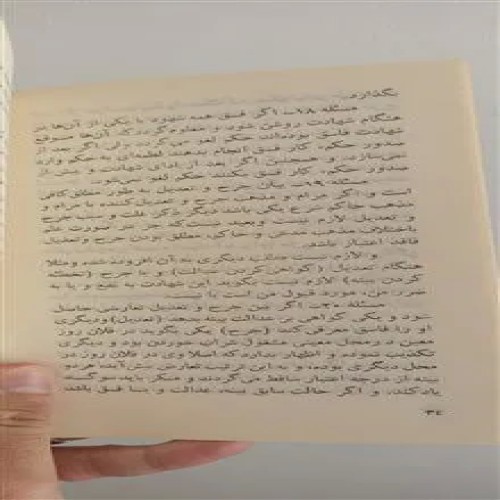 بگذارد.
مسئله ۱۸ـ اگر فسق همه شهود یا یکی از آن‌ها در
هنگام شهادت روشن شود و معلوم گردد که آن‌ها موقع
شهادت فاسق بوده‌اند حکم لغو می‌گردد، ولی اگر بعد از
صدور حکم، کار فسق انجام بدهند لطمه‌ای به حکم وارد
نمی‌سازد، و همچنین اگر بعد از ادای شهادت و پیش از
صدور حکم، کار فسق بکنند حکم لغو شود.
مسئله ۱۹ـ بیان جرح و تعدیل به طور مطلق کافی
است و اگر مرام و مذهب جرح و تعدیل‌کننده با مرام و
مذهب حاکم شرع یکی باشد دیگر ذکر علت و سبب جرح
و تعدیل لازم نیست و بعید نیست که جز در صورت علم
باختلاف مذهب مدعی و حاکم، مطلق بودن جرح و تعدیل
فاقد اعتبار باشد.
و لازم نیست مطلب دیگری به آن افزوده شود مثلا
هنگام تعدیل (گواهی کردن عدالت) و یا جرح (تخطئه
کردن بینه) لازم نیست بگوید این شهادت به نفع و یا به
ضرر من، مورد قبول من است یا نیست.
مسئله ۲۰ـ اگر بین جرح و تعدیل تعارضی حاصل
شود و یکی گواهی بر عدالت بینه بدهد (تعدیل) و دیگری
او را فاسق معرفی کند (جرح) یکی بگوید در فلان روز
معین در محل معینی مشغول شراب خوردن بود و دیگری
تکذیب نموده و اظهار بدارد که اصلا وی در فلان روز در
محل دیگری بوده، و به این ترتیب تعارض پیش آید، هر دو
بینه از درجه اعتبار ساقط می‌گردند و منکر باید سوگند
یاد کند، و اگر حالت سابق بینه، عدالت و یا فسق باشد
۳٤